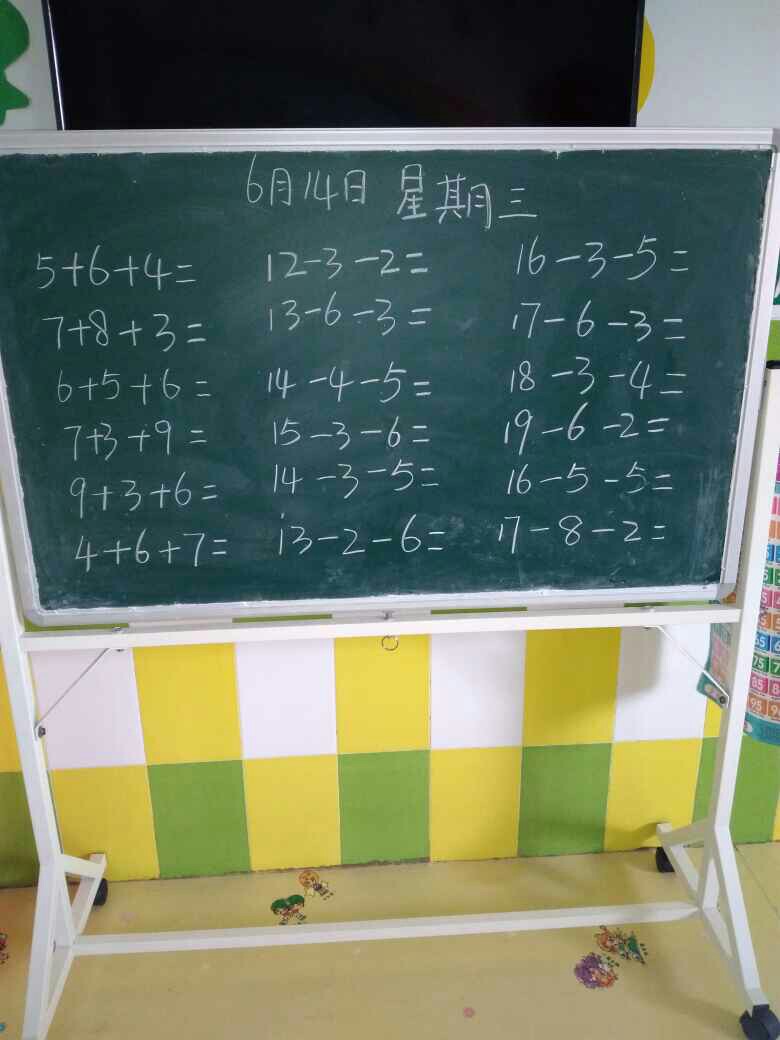 6月14日 星期三
5+6+4= 12-3-2= 16-3-5=
7+8+3= 13-6-3= 17-6-3=
6+5+6= 14-4-5= 18-3-4=
7+3+9= 15-3-6= 19-6-2=
9+3+6= 14-3-5= 16-5-5=
4+6+7= 13-2-6= 17-8-2=